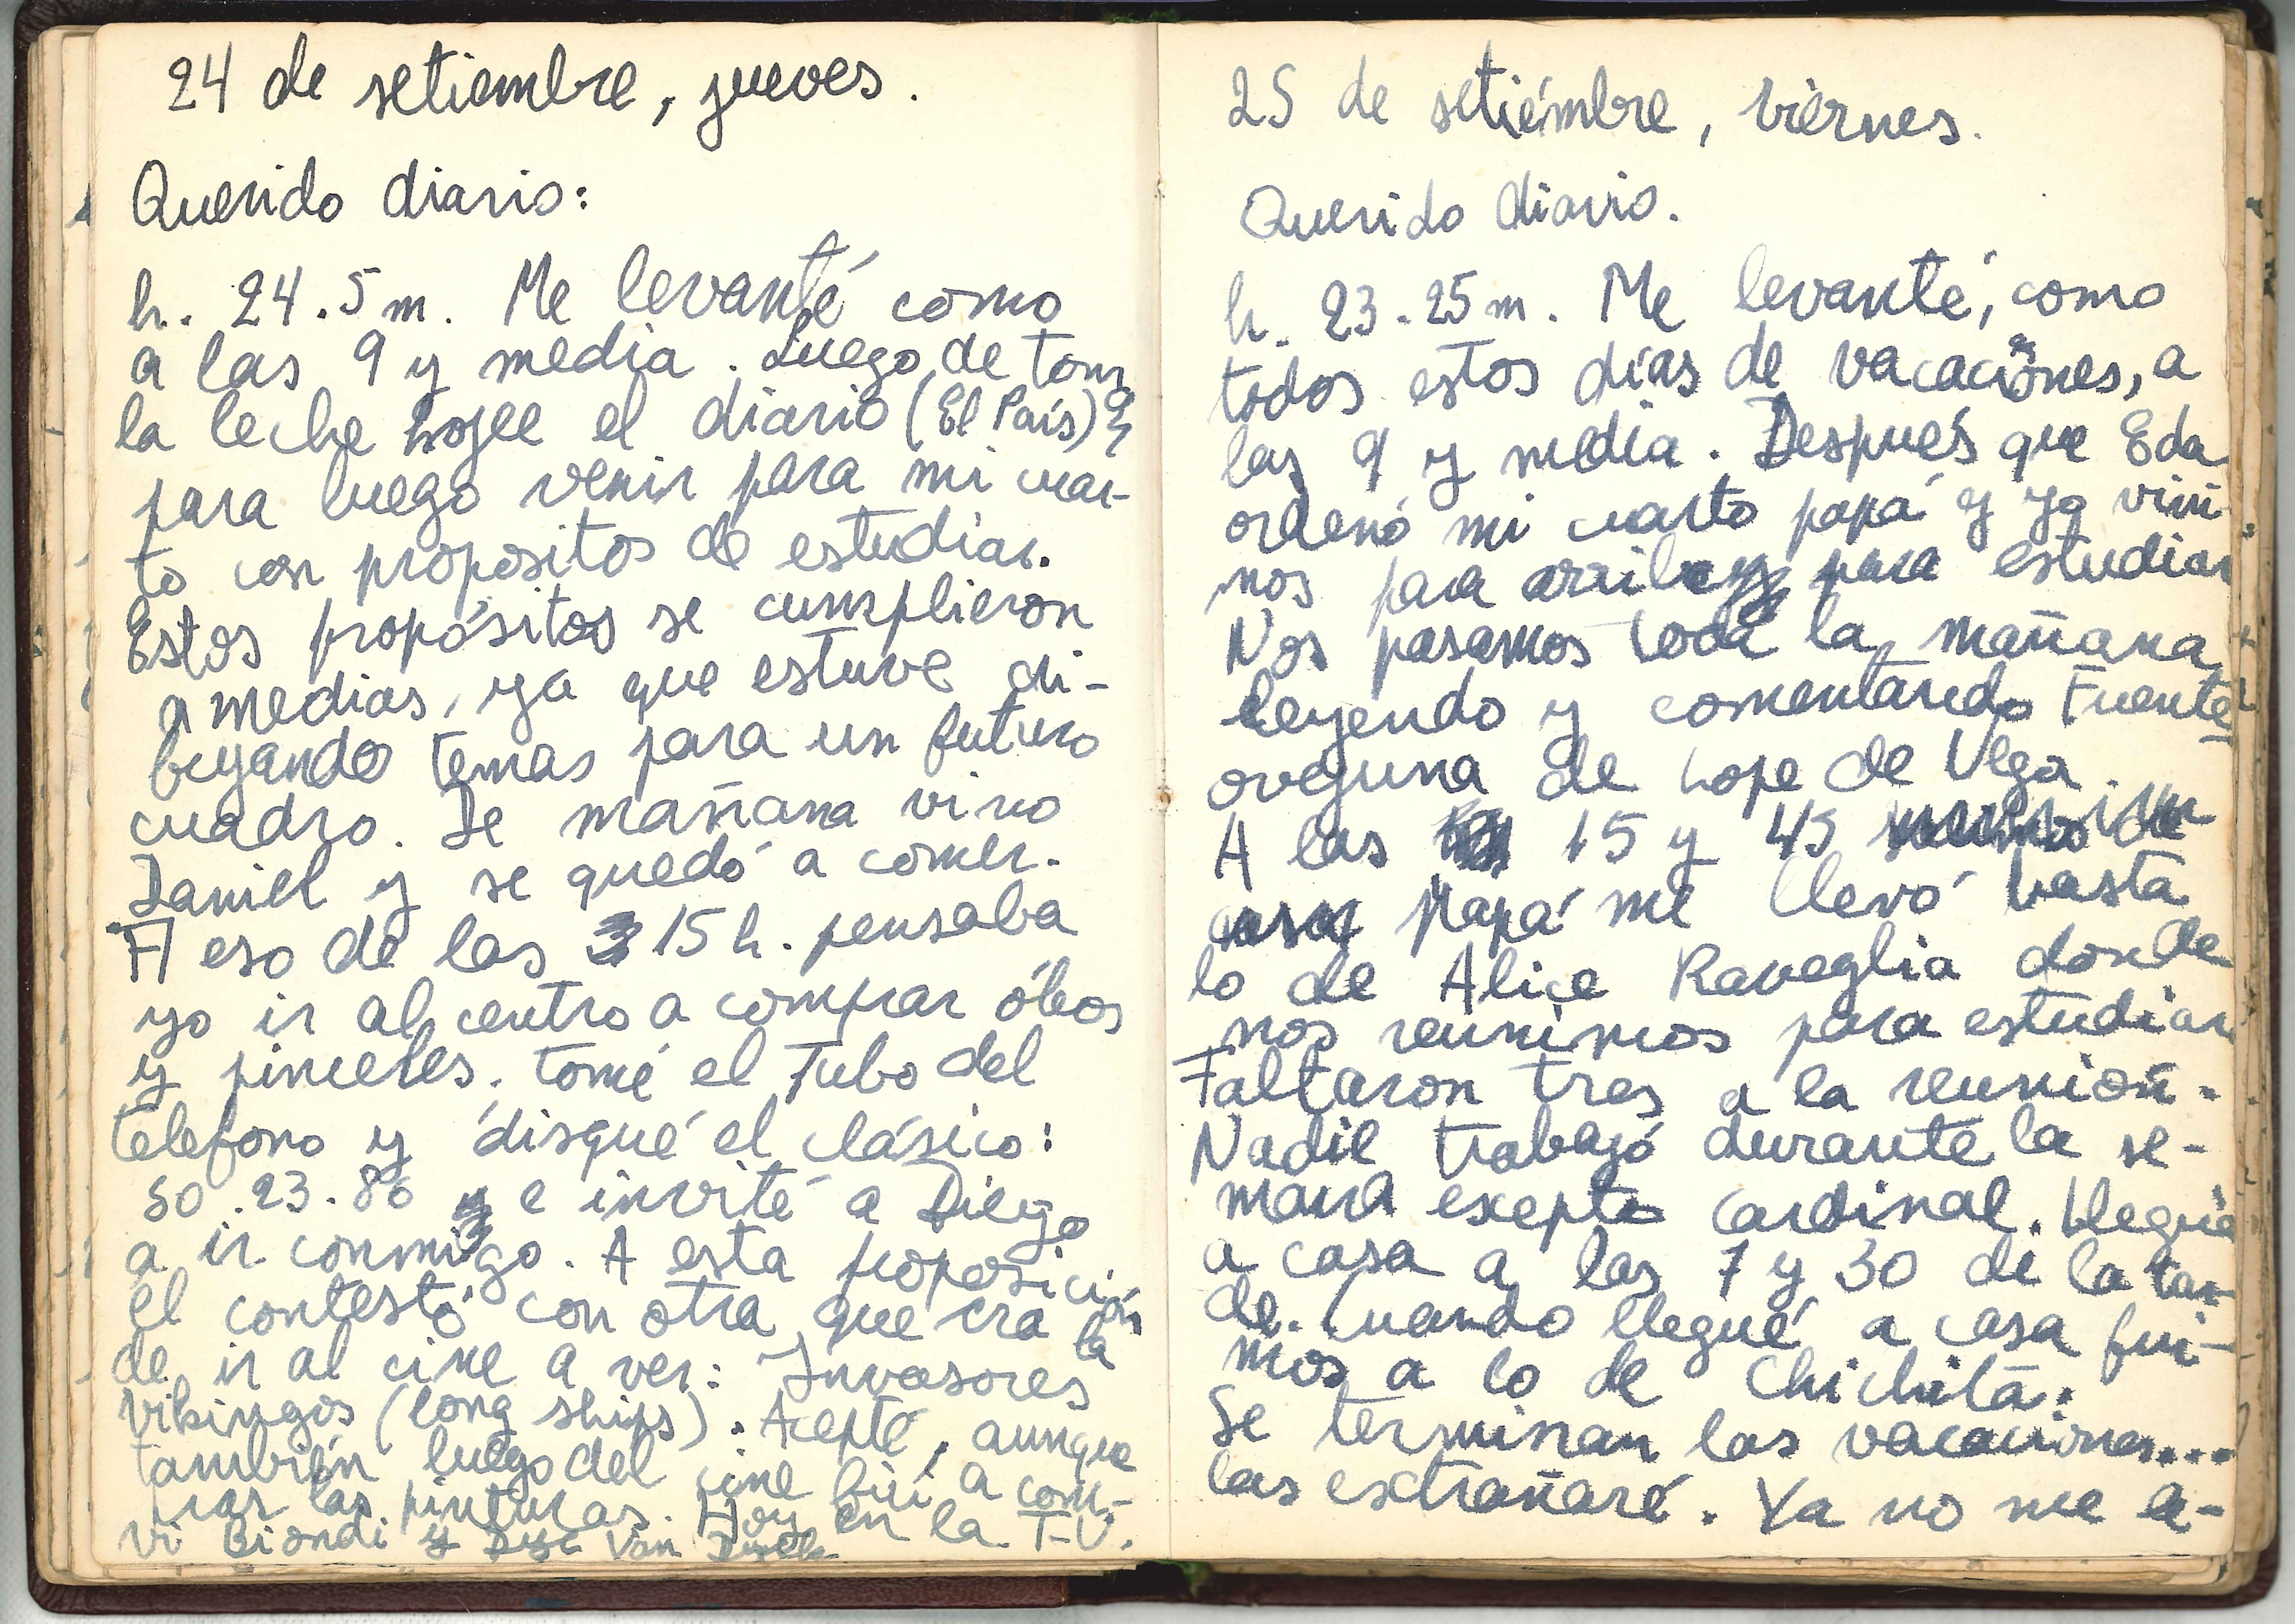 24 de setiembre, jueves.
Querido diario:
h. 24.5m. Me levanté como
a las 9 y media. Luego de tomar
la leche hojee el diario (El País)
para luego venir para mi cuar-
to con propositos de estudiar.
Estos propósitos se cumplieron
a medias, ya que estuve di-
bujando temas para un futuro
cuadro. De mañana vino
Daniel y se quedó a comer.
A eso de las 15 h. pensaba
yo ir al centro a comprar óleos
y pinceles. tomé el Tubo del
telefono y disqué el clásico:
50.23.86 e invité a Diego
a ir conmigo. A esta proposición
el contestó con otra, que era la
de ir al cine a ver: Invasores
vikingos (long ships). Acepté, aunque
también luego del cine fui a com-
prar las pinturas. Hoy en la T-V.
vi Biondi y Van
25 de setiémbre, viérnes.
Querido diario.
h. 23.25m. Me levanté, como
todos estos días de vacaciones, a
las 9 y media. Después que Eda
ordenó mi cuarto papá y yo vini
mos para arriba para estudiar
Nos pasamos toda la mañana
leyendo y comentando Fuente
ovejuna de Lope de Vega.
A las 15 y 45
Papá me llevó hasta
lo de Alice Raveglia donde
nos reunimos para estudiar
Faltaron tres a la reunión.
Nadie trabajó durante la se-
mana exepto Cardinal. Llegué
a casa a las 7 y 30 de la tar-
de. Cuando llegué a casa fui-
mos a lo de Chichita.
Se terminan las vacaciones...
las extrañaré. Ya no me a-